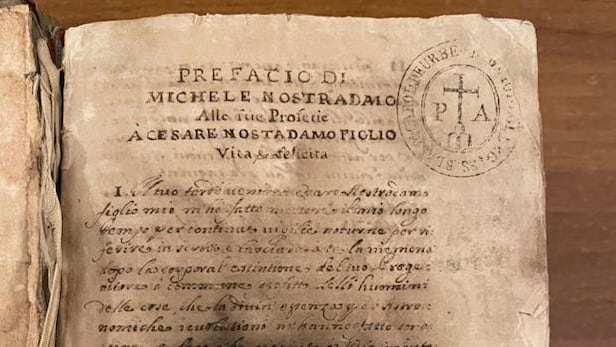 PREFACIO DI
MICHELE NOSTRADMO
Alle sue Profetie
À CESARE NOSTADAMO FIGLIO
Vita & felicita
P A
Il tuo tardo venire Cesare Nostradamo
figlio mio m'ha fatto mettere il mio longo
tempo per continue vigilie noturne per ri
ferire in e te la memoria
dopo la corporal estintione del tuo Proge
nitore à commune profitto delli huomini
delle cose che la divin essenza per
nomiche revolutioni m'hanno fatto